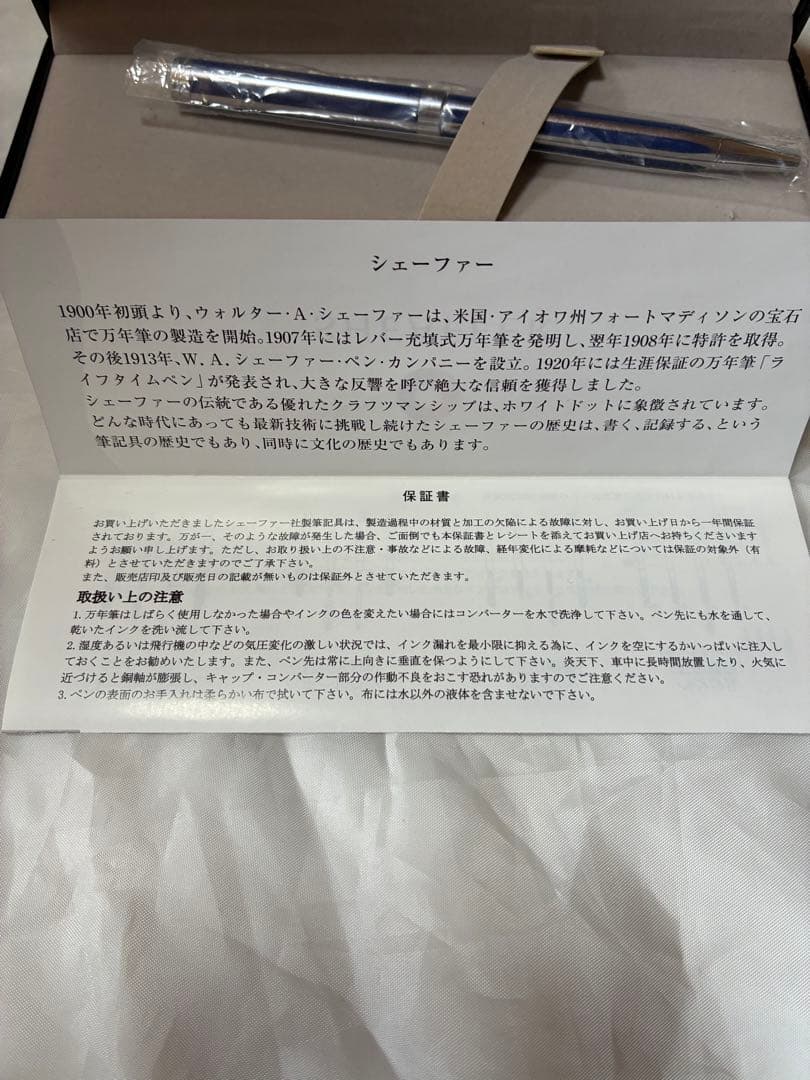 シェーファー
1900年初頭より、ウォルター・A・シェーファーは、米国・アイオワ州フォートマディソンの宝石
店で万年筆の製造を開始。1907年にはレバー充填式万年筆を発明し、翌年1908年に特許を取得。
その後1913年、W. A. シェーファー・ペン・カンパニーを設立。1920年には生涯保証の万年筆「ラ
イフタイムペン」が発表され、大きな反響を呼び絶大な信頼を獲得しました。
シェーファーの伝統である優れたクラフツマンシップは、ホワイトドットに象徴されています。
どんな時代にあっても最新技術に挑戦し続けたシェーファーの歴史は、書く、記録する、という
筆記具の歴史でもあり、同時に文化の歴史でもあります。
保証書
お買い上げいただきましたシェーファー社製筆記具は、製造過程中の材質と加工の欠陥による故障に対し、お買い上げ日から一年間保証
されております。万が一、そのような故障が発生した場合、ご面倒でも本保証書とレシートを添えてお買い上げ店へお持ちくださいます
ようお願い申し上げます。ただし、お取り扱い上の不注意・事故などによる故障、経年変化による摩耗などについては保証の対象外（有
料）とさせていただきますのでご了承下さい。
また、販売店印及び販売日の記載が無いものは保証外とさせていただきます。
取扱い上の注意
1. 万年筆はしばらく使用しなかった場合やインクの色を変えたい場合にはコンバーターを水で洗浄して下さい。ペン先にも水を通して、
乾いたインクを洗い流して下さい。
2. 湿度あるいは飛行機の中などの気圧変化の激しい状況では、インク漏れを最小限に抑える為に、インクを空にするかいっぱいに注入し
ておくことをお勧めいたします。また、ペン先は常に上向きに垂直を保つようにして下さい。炎天下、車中に長時間放置したり、火気に
近づけると銅軸が膨張し、キャップ・コンバーター部分の作動不良をおこす恐れがありますのでご注意ください。
3. ペンの表面のお手入れは柔らかい布で拭いて下さい。布には水以外の液体を含ませないで下さい。